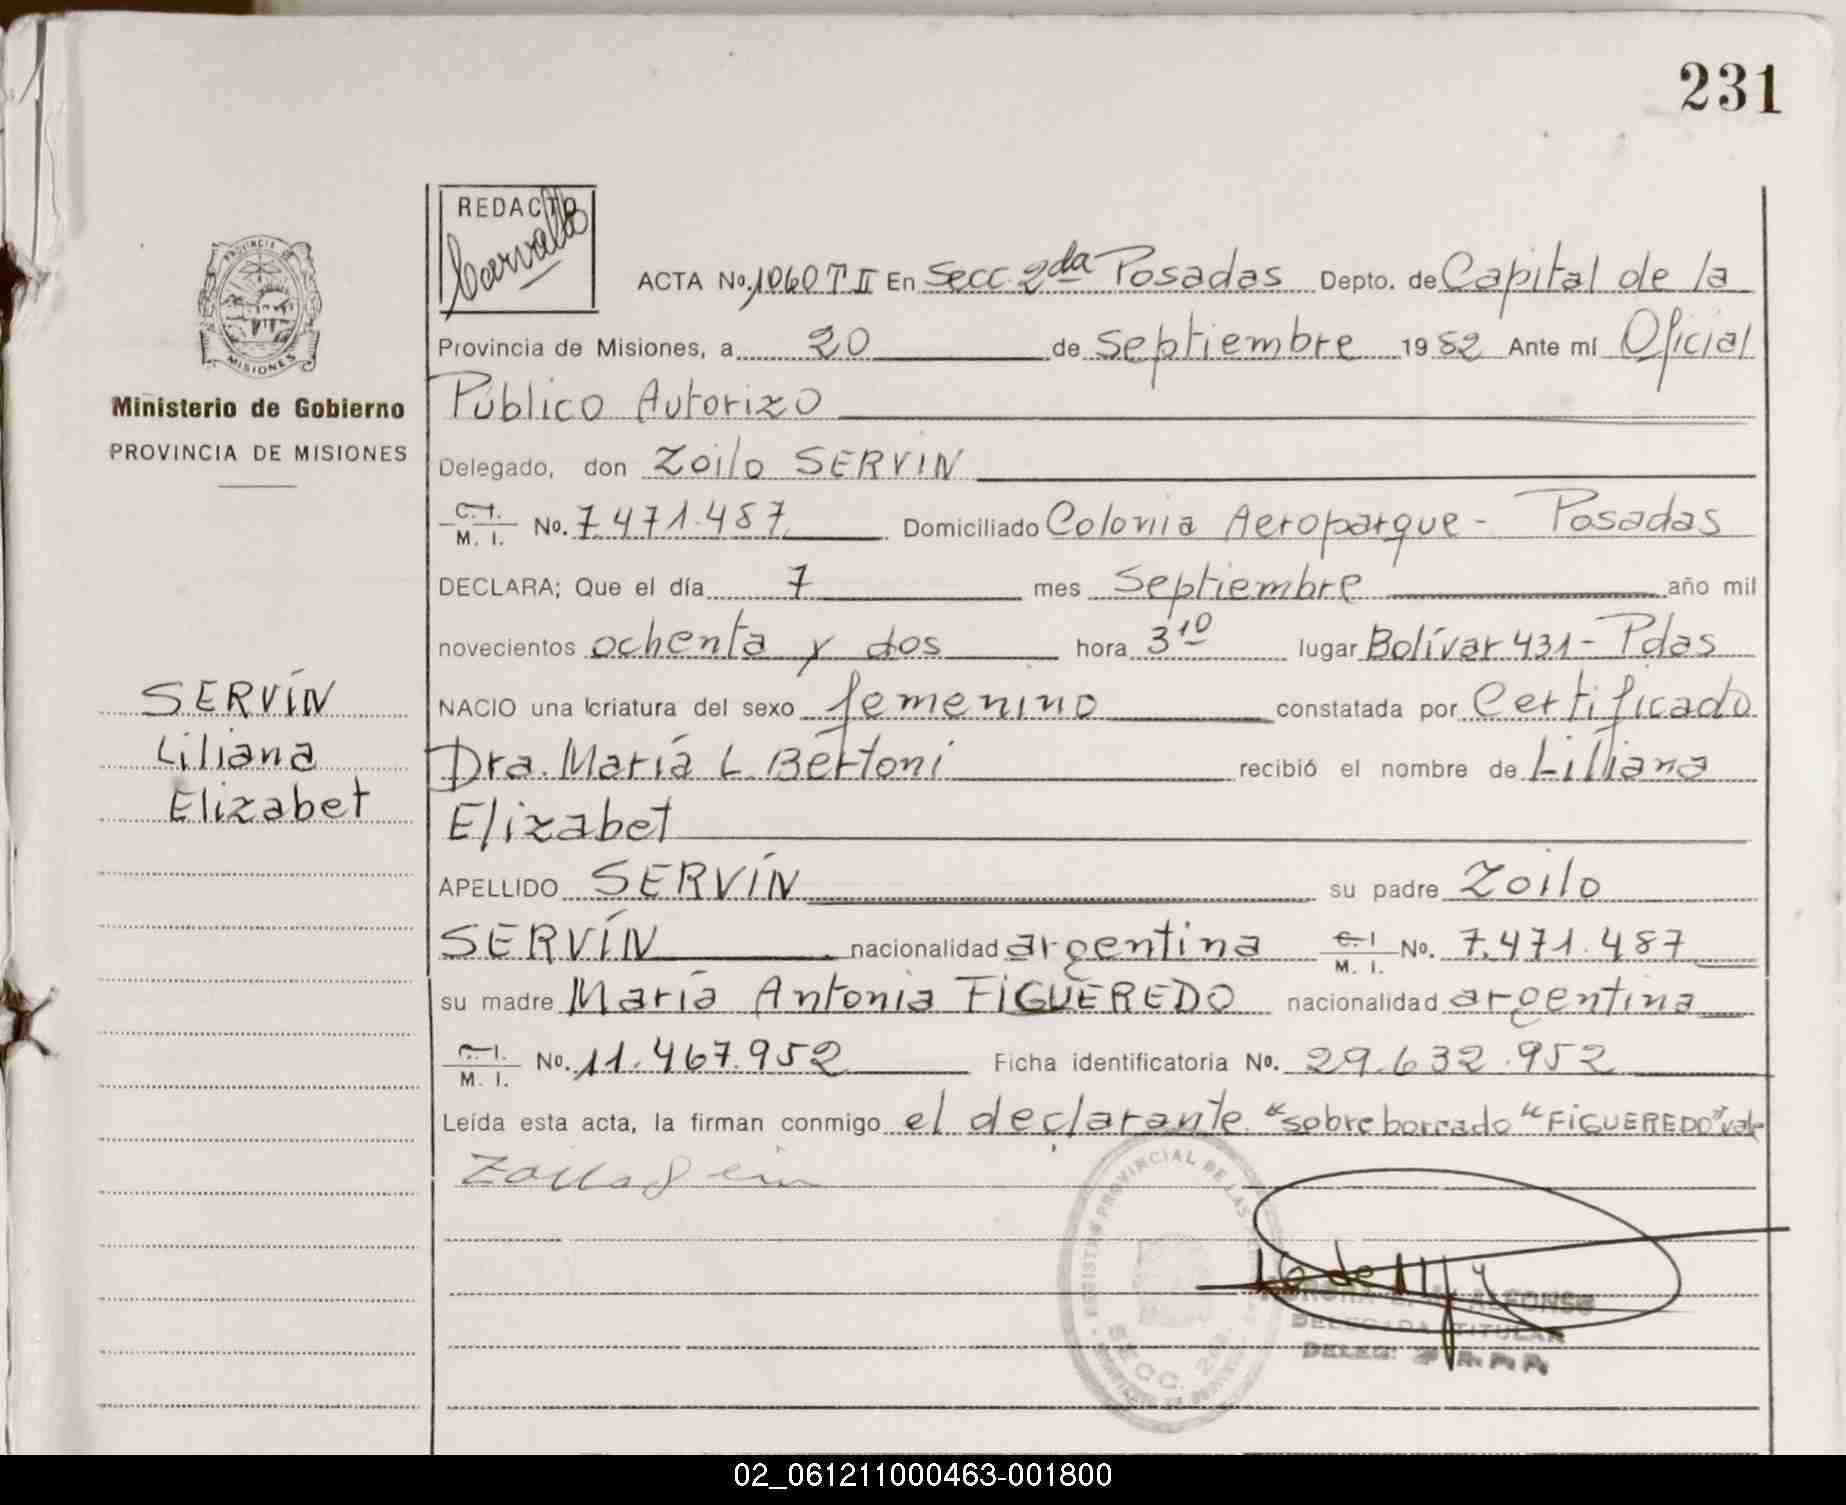 231
REDACTO
Carvallo
PROVINCIA DE
MISIONES
Ministerio de Gobierno
PROVINCIA DE MISIONES
SERVÍN
Liliana
Elizabet
ACTA No. 1060 T II En Secc 2da Posadas Depto. de Capital de la
Provincia de Misiones, a 20 de Septiembre 1982 Ante mí Oficial
Público Autorizo
Delegado, don Zoilo SERVIN
C. I. M. I. No. 7.471.487 Domiciliado Colonia Aeroparque - Posadas
DECLARA; Que el día 7 mes Septiembre año mil
novecientos ochenta y dos hora 3 10 lugar Bolívar 431 - Pdas
NACIO una criatura del sexo femenino constatada por Certificado
Dra. María L. Bertoni recibió el nombre de Liliana
Elizabet
APELLIDO SERVÍN su padre Zoilo
SERVÍN nacionalidad argentina C. I. M. I. No. 7.471.487
su madre María Antonia FIGUEREDO nacionalidad argentina
C. I. M. I. No. 11.467.952 Ficha identificatoria No. 29.632.952
Leída esta acta, la firman conmigo el declarante. "sobreborrado "FIGUEREDO" vale
REGISTRO PROVINCIAL DE LAS
SECC. 2da.
ALFONSO
DELEGADA TITULAR
DELEG. 2 R. P. P.
02_061211000463-001800